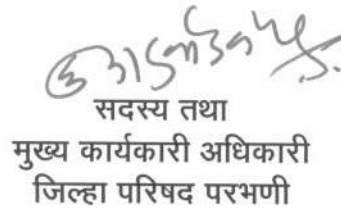 सदस्य तथा
मुख्य कार्यकारी अधिकारी
जिल्हा परिषद परभणी